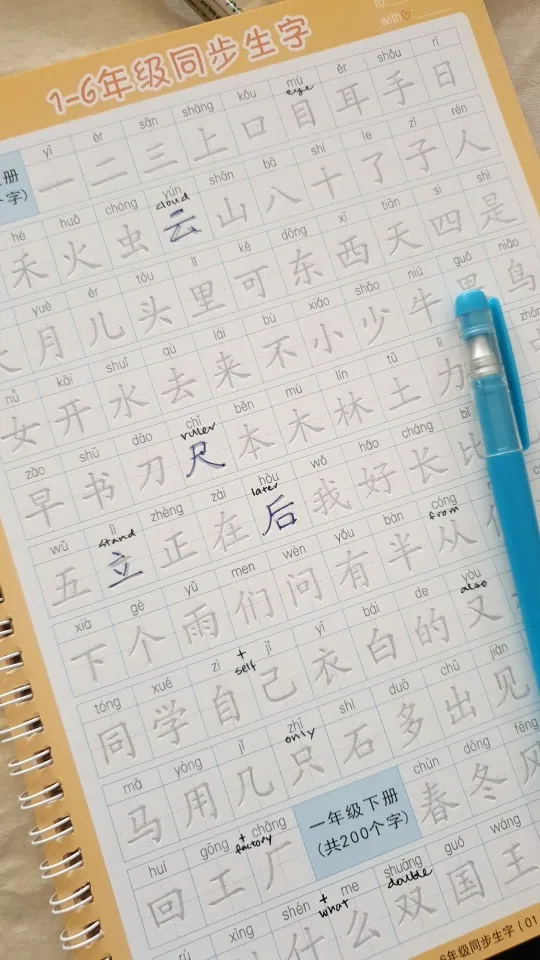 to:
with
1-6年级同步生字
yī èr sān shàng kǒu mù ěr shǒu rì
eye
一 二 三 上 口 目 耳 手 日
册
字)
hé huǒ chóng yún shān bā shí le zǐ rén
cloud
禾 火 虫 云 山 八 十 了 子 人
yuè ér tóu lǐ kě dōng xī tiān sì shì
月 儿 头 里 可 东 西 天 四 是
nǚ kāi shuǐ qù lái bù xiǎo shǎo niú guǒ niǎo
女 开 水 去 来 不 小 少 牛 鸟
zǎo shū dāo chǐ běn mù lín tǔ lì
ruler
早 书 刀 尺 本 木 林 土 力
wǔ lì zhèng zài hòu wǒ hǎo cháng bǐ
stand later
五 立 正 在 后 我 好 长 比
xià gè yǔ men wèn yǒu bàn cóng
from
下 个 雨 们 问 有 半 从
tóng xué zì jǐ yī bái de yòu
+ self also
同 学 自 己 衣 白 的 又
mǎ yòng jǐ zhǐ shí duō chū jiàn
only
马 用 几 只 石 多 出 见
huí gōng chǎng chūn dōng fēng
+ factory
回 工 厂 一年级下册 春 冬 风
(共200个字)
rù xìng shén me shuāng guó wáng
+ what double
什 么 双 国 王
6年级同步生字 | 01